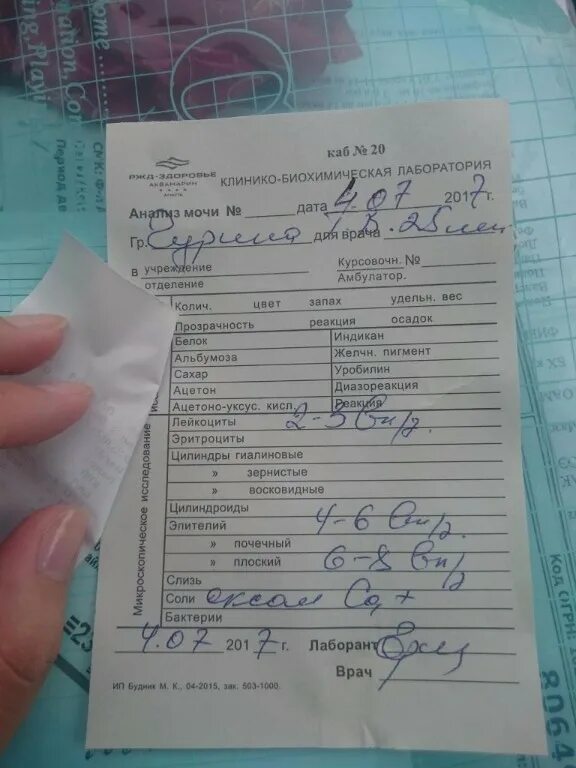 каб № 20
РЖД-ЗДОРОВЬЕ
АКВАМАРИН
АНАПА
КЛИНИКО-БИОХИМИЧЕСКАЯ ЛАБОРАТОРИЯ
Анализ мочи № дата 4.07 2017г.
Гр. для врача
в учреждение
отделение
Курсовочн. №
Амбулатор.
Колич. цвет запах удельн. вес
Прозрачность реакция осадок
Белок Индикан
Альбумоза Желчн. пигмент
Сахар Уробилин
Ацетон Диазореакция
Ацетоно-уксус. кисл. Реакция
Микроскопическое исследование
Лейкоциты 2-3 в п/з.
Эритроциты
Цилиндры гиалиновые
» зернистые
» восковидные
Цилиндроиды
Эпителий 4-6 в п/з.
» почечный
» плоский 6-8 в п/з
Слизь
Соли оксал Ca +
Бактерии
4.07 2017г. Лаборант
Врач
ИП Будник М. К., 04-2015, зак. 503-1000.
Код ОГРН:
8064